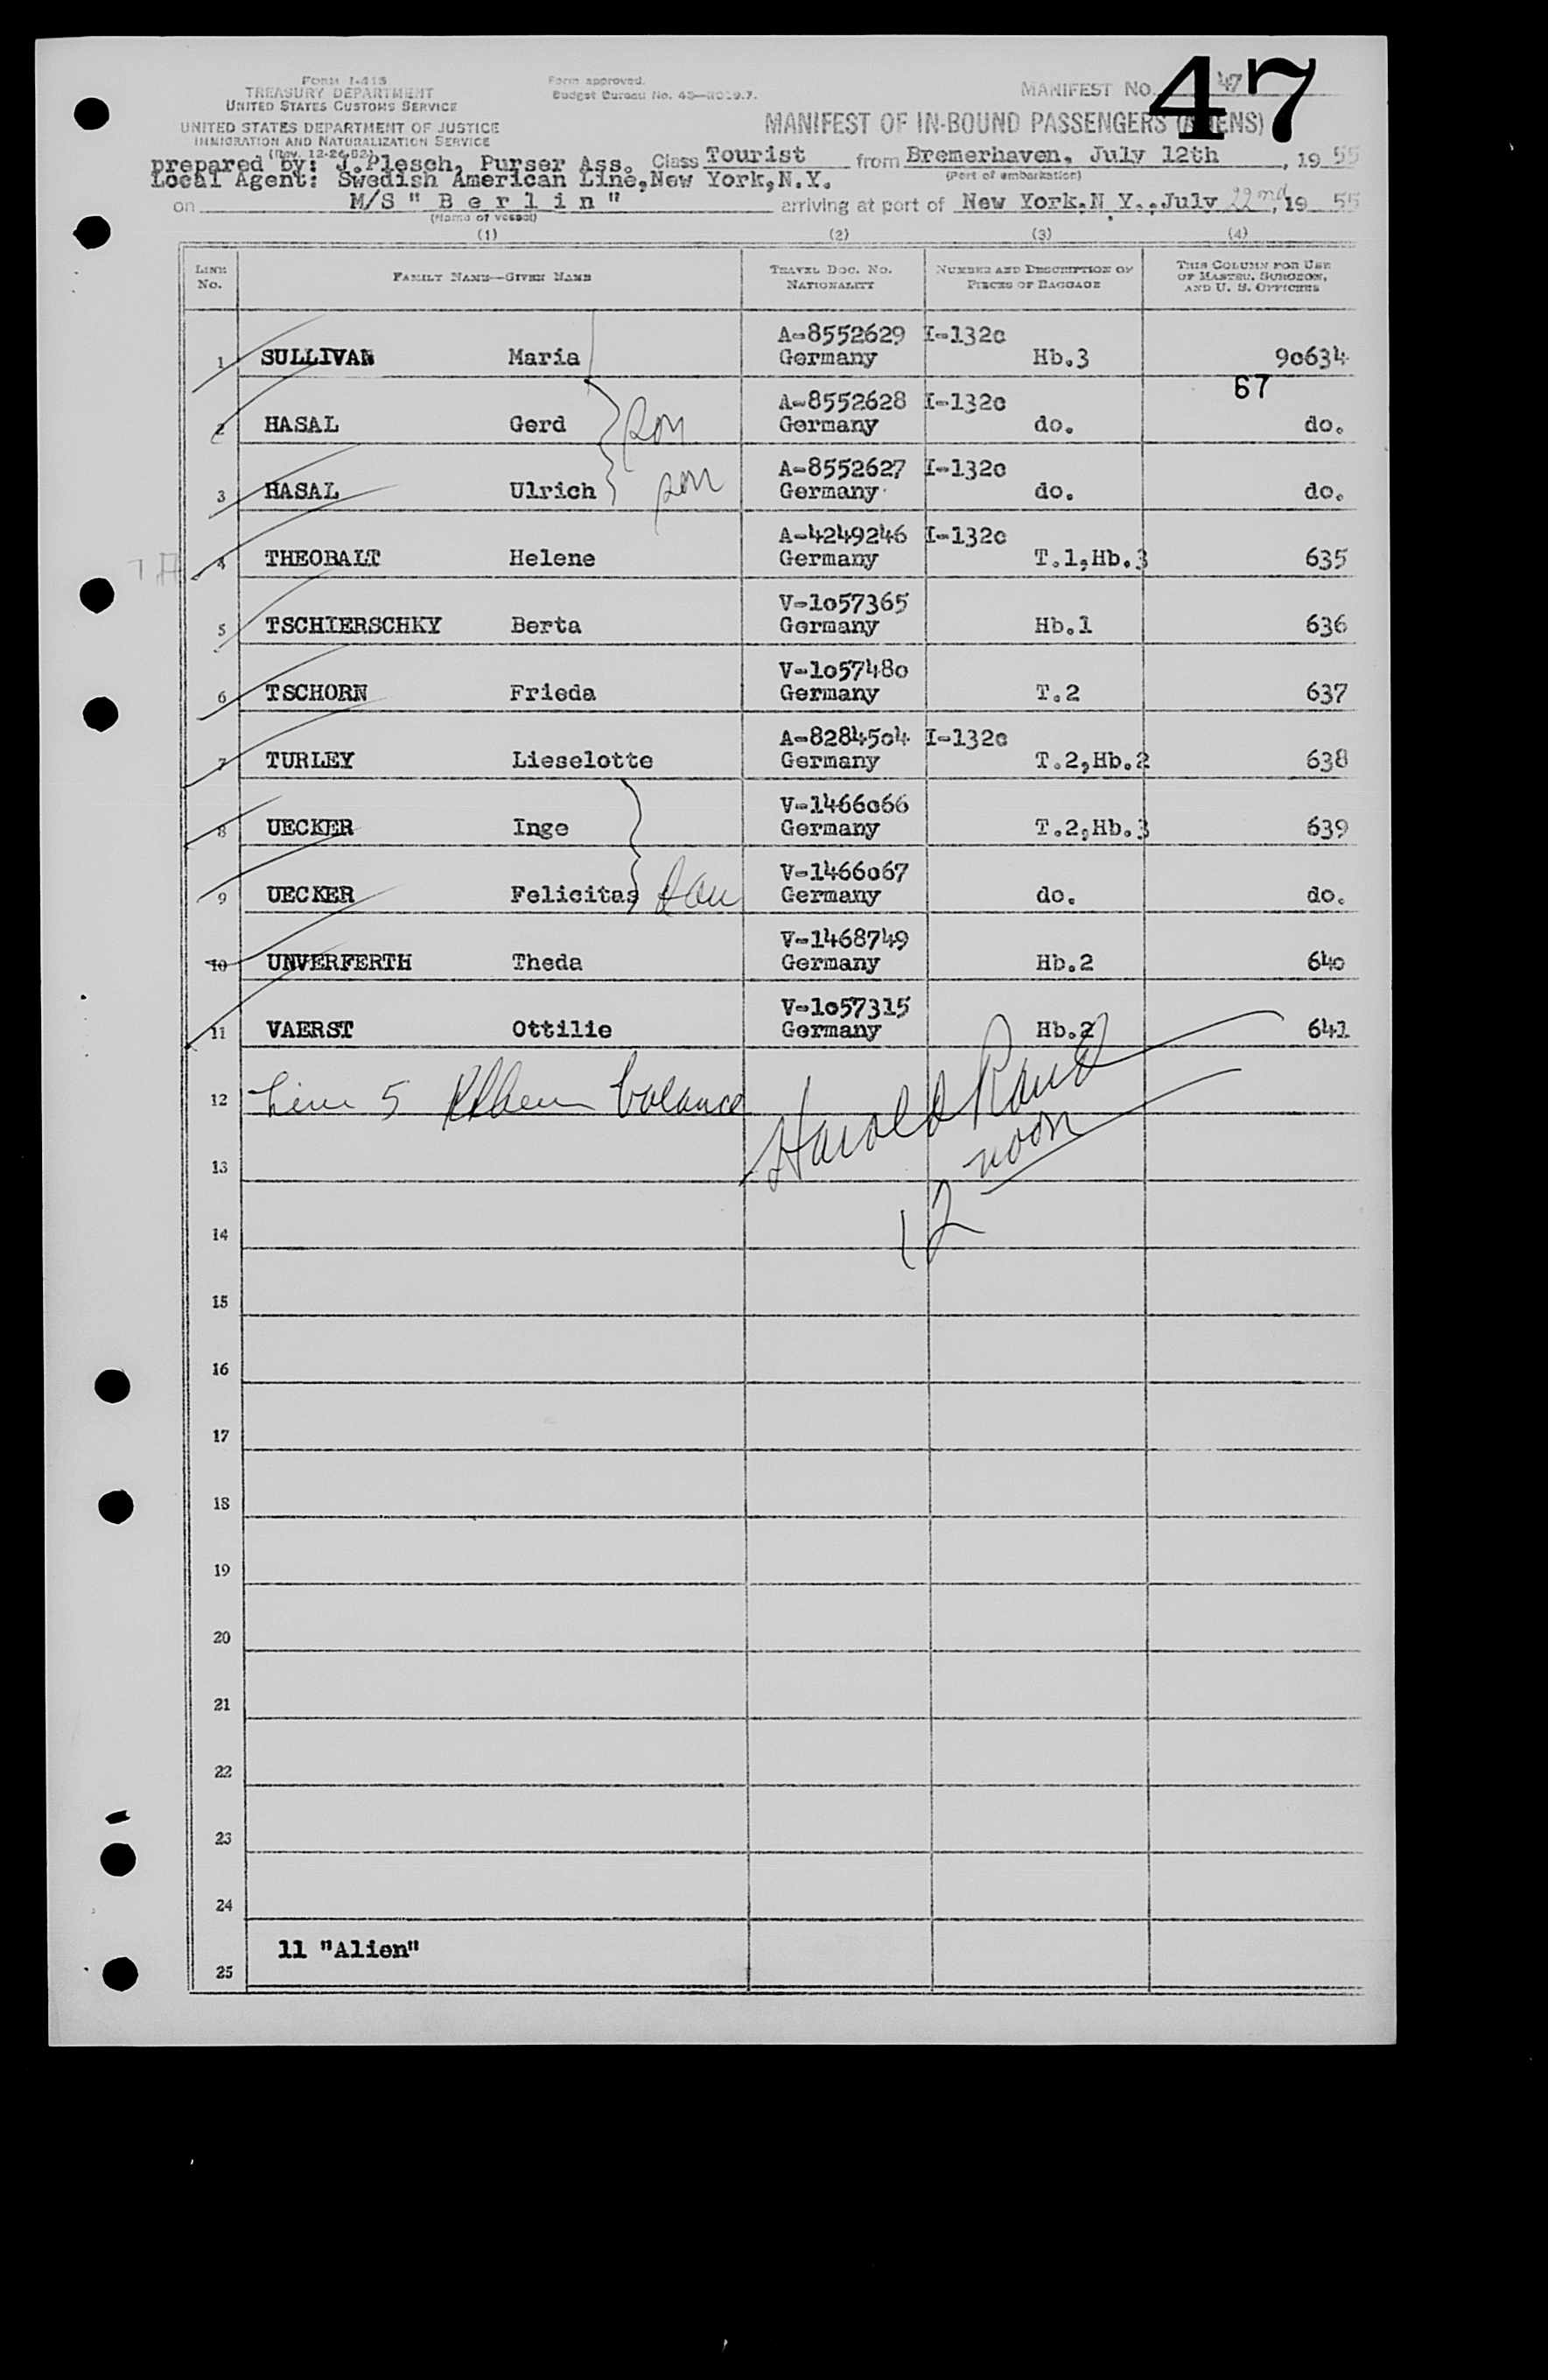 47
FORM I-418
TREASURY DEPARTMENT
UNITED STATES CUSTOMS SERVICE
UNITED STATES DEPARTMENT OF JUSTICE
IMMIGRATION AND NATURALIZATION SERVICE
(Rev. 12-26-52)
Form approved.
Budget Bureau No. 43—R019.7.
MANIFEST NO. 47
MANIFEST OF IN-BOUND PASSENGERS (ALIENS)
prepared by: J.Plesch, Purser Ass. Class Tourist from Bremerhaven, July 12th, 1955
(Port of embarkation)
Local Agent: Swedish American Line,New York,N.Y.
on M/S " B e r l i n " arriving at port of New York,N Y.,July 22nd, 19 55
(Name of vessel)
(1) (2) (3) (4)
LINE No. FAMILY NAME—GIVEN NAME TRAVEL DOC. NO. NATIONALITY NUMBER AND DESCRIPTION OF PIECES OF BAGGAGE THIS COLUMN FOR USE OF MASTER, SURGEON, AND U. S. OFFICERS
A-8552629 I-132c
1 SULLIVAN Maria Germany Hb.3 90634
67
A-8552628 I-132c
2 HASAL Gerd son Germany do. do.
A-8552627 I-132c
3 HASAL Ulrich son Germany do. do.
A-4249246 I-132c
4 THEOBALT Helene Germany T.1,Hb.3 635
V-1o57365
5 TSCHIERSCHKY Berta Germany Hb.1 636
V-1o57480
6 TSCHORN Frieda Germany T.2 637
A-8284504 I-132c
7 TURLEY Lieselotte Germany T.2,Hb.2 638
V-1466066
8 UECKER Inge Germany T.2,Hb.3 639
V-1466067
9 UECKER Felicitas dau Germany do. do.
V-1468749
10 UNVERFERTH Theda Germany Hb.2 640
V-1o57315
11 VAERST Ottilie Germany Hb.2 641
12 Line 5 balance Harold Rand
13 noon
14 12
15
16
17
18
19
20
21
22
23
24
11 "Alien"
25